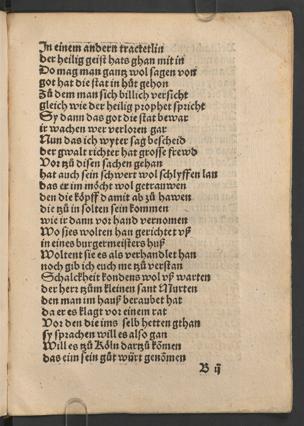 In einem andern tractetlin
der heilig geist hats ghan mit in
Do mag man gantz wol sagen von
got hat die stat in hůt gehon
Zů dem man sich billich versicht
gleich wie der heilig prophet spricht
Sy dann das got die stat bewar
ir wachen wer verloren gar
Nun das ich wyter sag bescheid
der gwalt richter hat grosse frewd
Vor tzů disen sachen gehan
hat auch sein schwert wol schlyffen lan
das er im möcht wol getrauwen
den die köpff damit ab zů hawen
die tzů in solten sein kommen
wie ir dann vor hand vernomen
Wo sies wolten han gerichtet vß
in eines burgermeisters huß
Woltent sie es als verhandlet han
noch gib ich euch me tzů verstan
Schalckheit kondens wol vß warten
der herr tzům kleinen sant Marten
den man im hauß beraubet hat
da er es klagt vor einem rat
Vor den die ims selb hetten gthan
sy sprachen will es also gan
Will es tzů Köln dartzů kōmen
das eim sein gůt würt genōmen
B ij